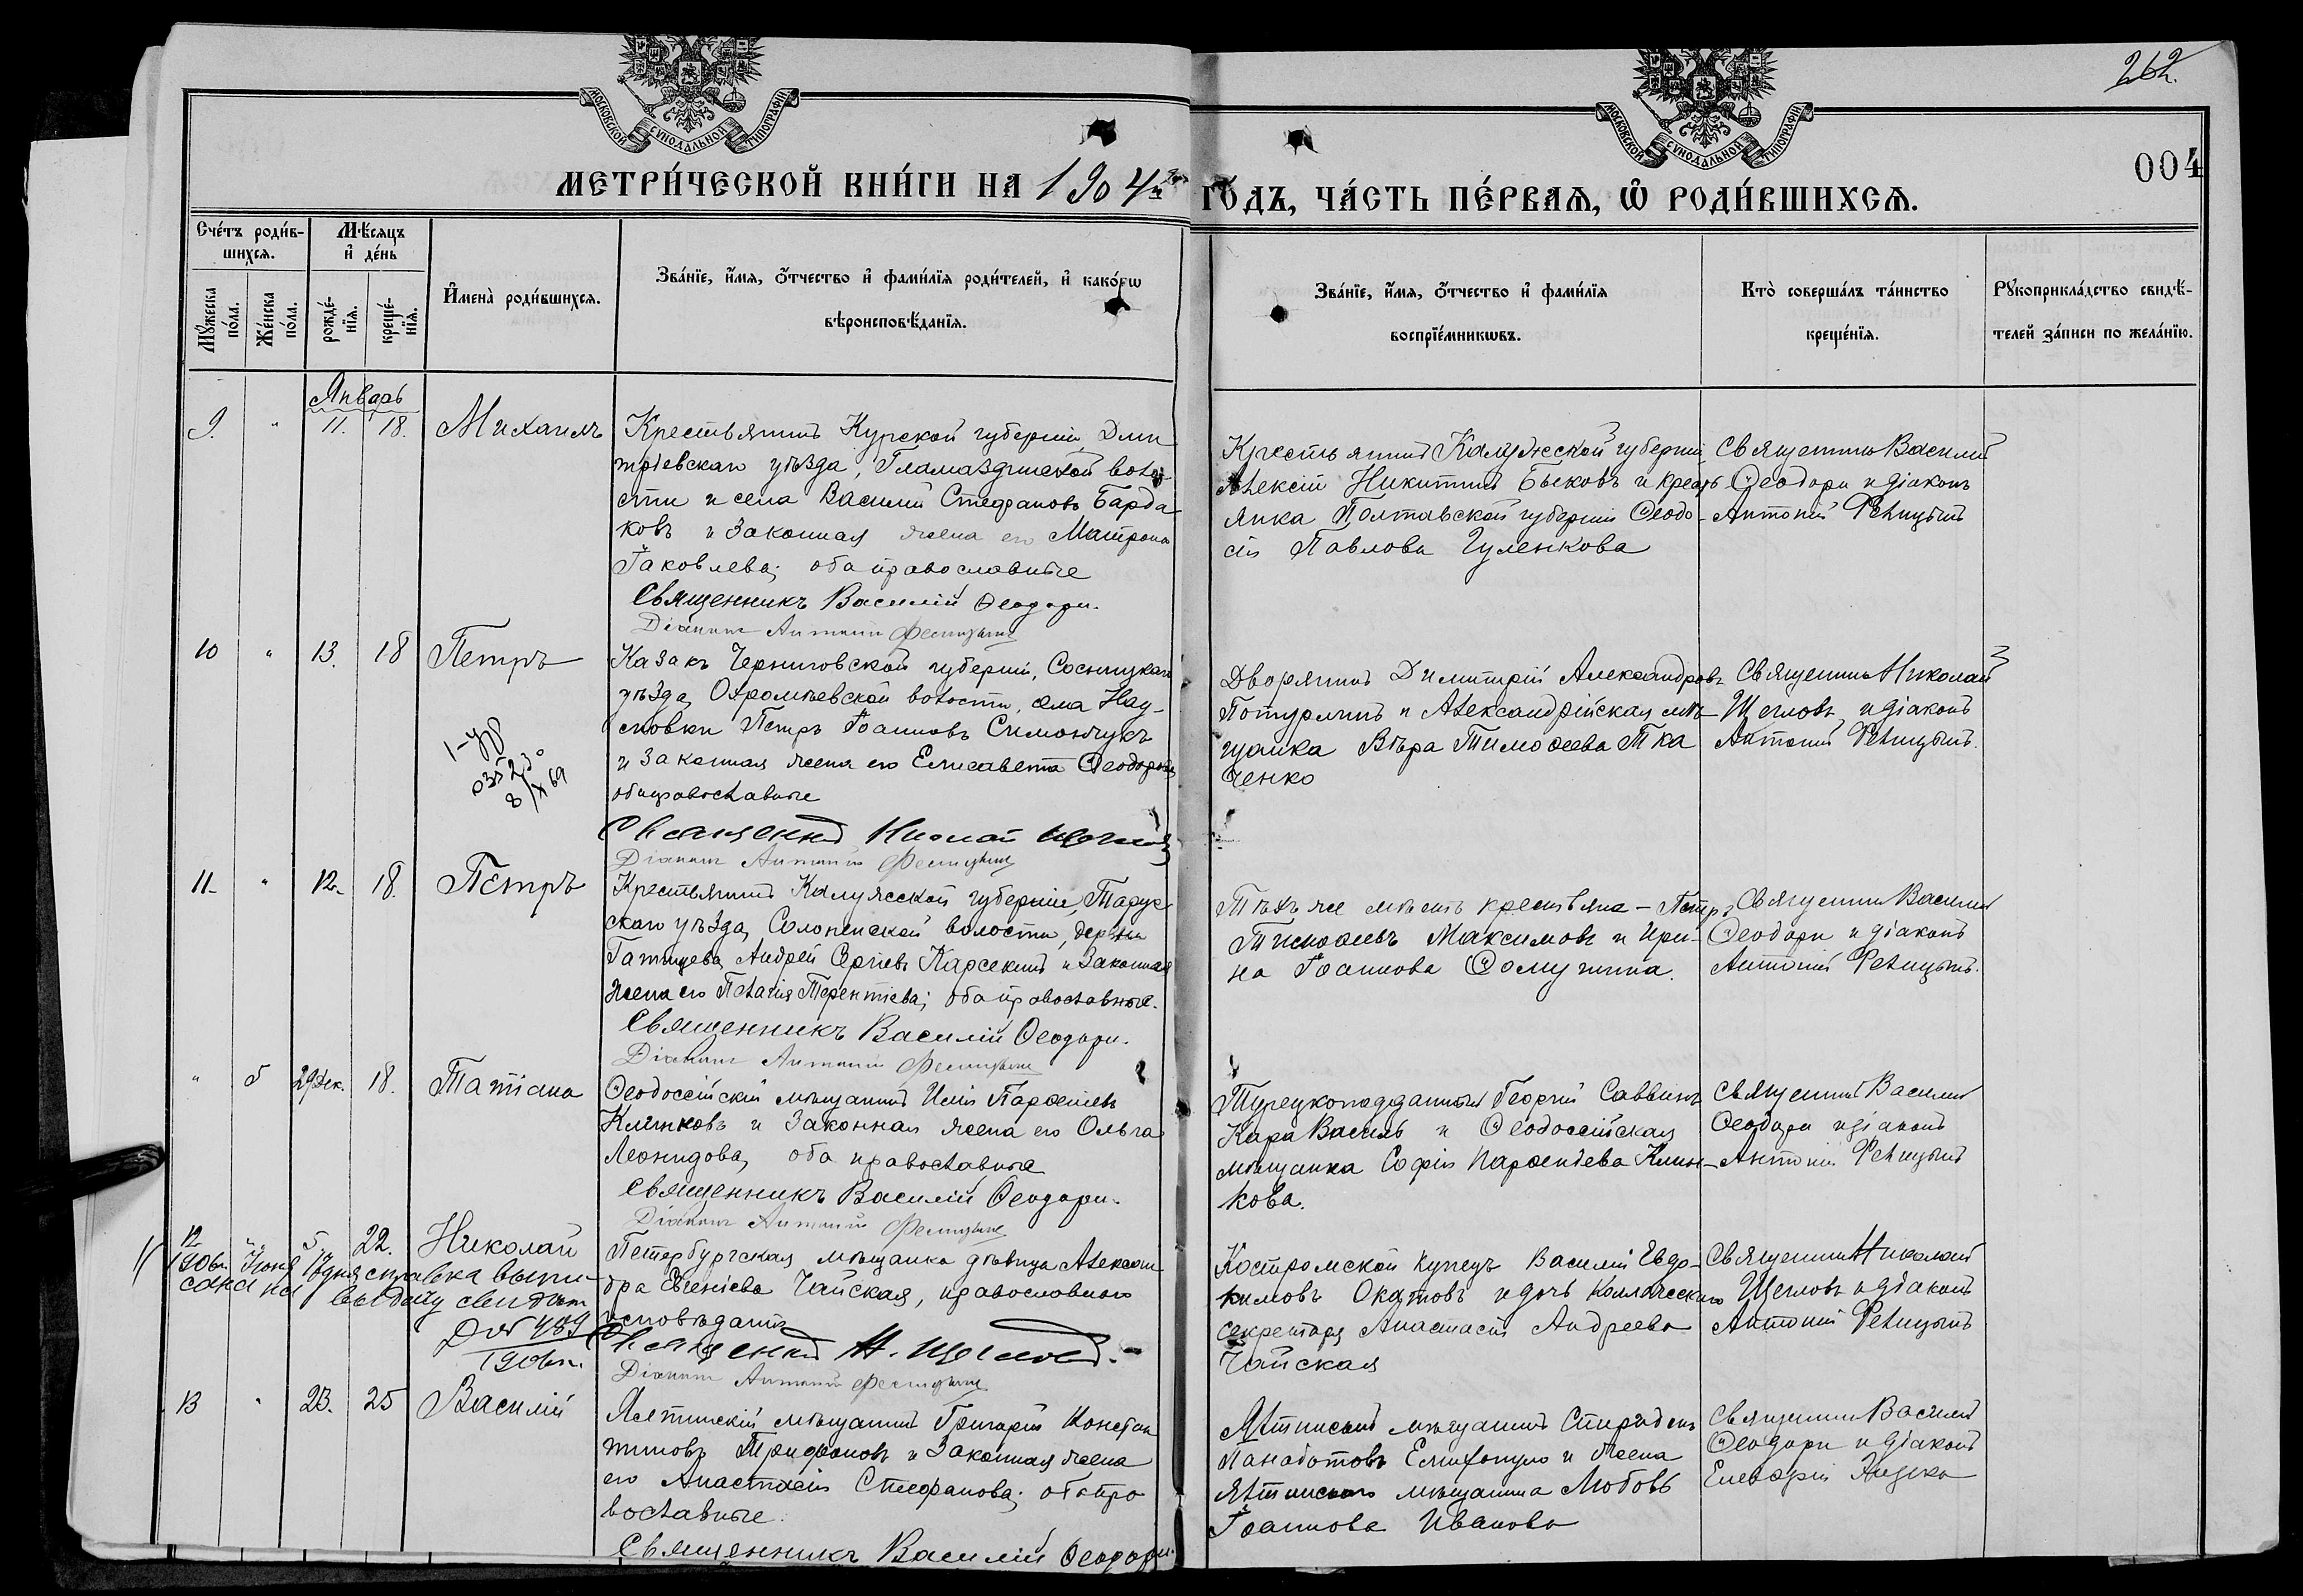 262.
004
МОСКОВСКОЙ СѴНОДАЛЬНОЙ ТИПОГРАФІИ
МОСКОВСКОЙ СѴНОДАЛЬНОЙ ТИПОГРАФІИ
МЕТРИ́ЧЕСКОЙ КНИ́ГИ НА 1904й
ГО́ДЪ, ЧА́СТЬ ПЕ́РВАѦ, Ѽ РОДИ́ВШИХСѦ.
Сче́тъ роди́в-
шихсѧ.
Мѣ́сѧцъ
и҆ де́нь
Мꙋ́жеска
по́ла.
Же́нска
по́ла.
рожде́-
нїѧ.
креще́-
нїѧ.
И҆мена̀ роди́вшихсѧ.
Зва́нїе, и҆́мѧ, ѻ҆́тчество и҆ фами́лїѧ роди́телей, и҆ како́гѡ
вѣроисповѣ́данїѧ.
Зва́нїе, и҆́мѧ, ѻ҆́тчество и҆ фами́лїѧ
воспрїе́мникѡвъ.
Кто̀ соверша́лъ та́инство
креще́нїѧ.
Рꙋкоприкла́дство свидѣ́-
телей за́писи по жела́нїю.
Январь
9. " 11. 18. Михаилъ
Крестьянинъ Курской губерніи, Дми-
тріевскаго уѣзда, Гламаздинской воло-
сти и села Василій Стефановъ Барда-
ковъ и законная жена его Матрона
Іаковлева; оба православные
Священникъ Василій Ѳеодори.
Діаконъ Антоній Феницынъ
Крестьянинъ Калужской губерніи
Алексій Никитинъ Быковъ и кресть-
янка Полтавской губерніи Ѳеодо-
сія Павлова Гуленкова
Священникъ Василій
Ѳеодори и діаконъ
Антоній Феницынъ
10 " 13. 18 Петръ
Казакъ Черниговской губерніи, Сосницкаго
уѣзда, Охромѣевской волости, села Нау-
мовки Петръ Іоанновъ Симончукъ
и законная жена его Елисавета Ѳеодорова,
оба православные
Священникъ Николай Щегловъ
Діаконъ Антоній Феницынъ
035230
8/X 69
Дворянинъ Димитрій Александровъ
Потурминъ и Александрійская мѣ-
щанка Вѣра Тимоѳеева Тка
ченко
Священникъ Николай
Щегловъ и діаконъ
Антоній Феницынъ.
11. " 12. 18. Петръ
Крестьянинъ Калужской губерніи, Тарус-
скаго уѣзда, Солопенской волости, деревни
Гатищева, Андрей Сергіевъ Карсекинъ и законная
жена его Пелагія Терентіева; оба православные.
Священникъ Василій Ѳеодори.
Діаконъ Антоній Феницынъ
Тѣхъ же мѣстъ крестьяне - Петръ
Тимоѳеевъ Максимовъ и Ири-
на Іоаннова Ѳомушина.
Священникъ Василій
Ѳеодори и діаконъ
Антоній Феницынъ.
" 5 29 Дек. 18. Татіана
Ѳеодосійскій мѣщанинъ Илія Парѳеніевъ
Клинковъ и законная жена его Ольга
Леонидова, оба православные
Священникъ Василій Ѳеодори.
Діаконъ Антоній Феницынъ
Турецкоподданный Георгій Саввинъ
Кара Василь и Ѳеодосійская
мѣщанка Софія Парѳентьева Клин-
кова.
Священникъ Василій
Ѳеодори и діаконъ
Антоній Феницынъ
12 " 5. 22. Николай
1906г. Іюня 18 дня справка выпи-
сана на выдачу свидѣт
489
1906г.
Петербургская мѣщанка дѣвица Алексан-
дра Евгеніева Чайская, православнаго
исповѣданія
Священникъ Н. Щегловъ.
Діаконъ Антоній Феницынъ
Костромской купецъ Василій Евдо-
кимовъ Окатовъ и дочь Коллежскаго
секретаря Анастасія Андреева
Чайская
Священникъ Николай
Щегловъ и діаконъ
Антоній Феницынъ
13 " 23. 25 Василій
Ялтинскій мѣщанинъ Григорій Констан-
тиновъ Трифоновъ и законная жена
его Анастасія Стефанова; оба пра
вославные.
Священникъ Василій Ѳеодори.
Ялтинскій мѣщанинъ Спиридонъ
Панаіотовъ и жена
Ялтинскаго мѣщанина Любовь
Іоаннова Иванова
Священникъ Василій
Ѳеодори и діаконъ
Елевѳерій